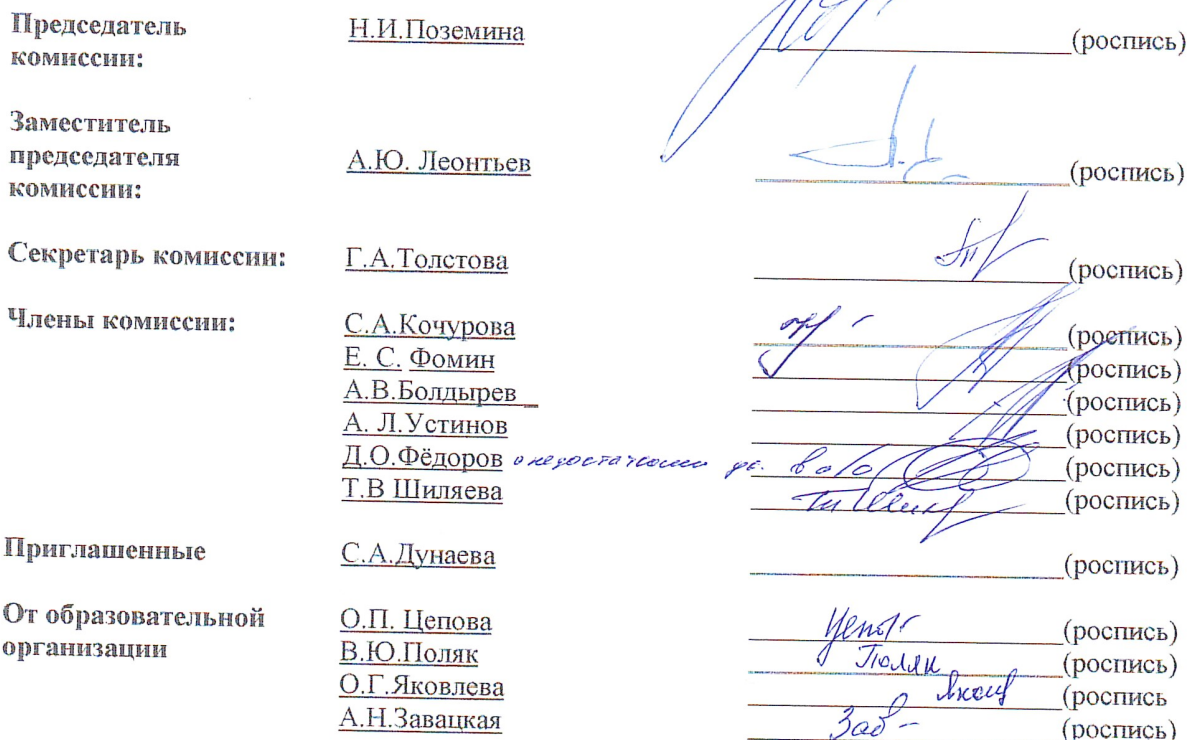 Председатель комиссии: Н.И.Поземина (роспись)
Заместитель председателя комиссии: А.Ю. Леонтьев (роспись)
Секретарь комиссии: Г.А.Толстова (роспись)
Члены комиссии: С.А.Кочурова (роспись)
Е. С. Фомин (роспись)
А.В.Болдырев (роспись)
А. Л.Устинов (роспись)
Д.О.Фёдоров (роспись)
Т.В Шиляева (роспись)
Приглашенные С.А.Дунаева (роспись)
От образовательной организации О.П. Цепова (роспись)
В.Ю.Поляк Поляк (роспись)
О.Г.Яковлева (роспись
А.Н.Завацкая Зав (роспись)